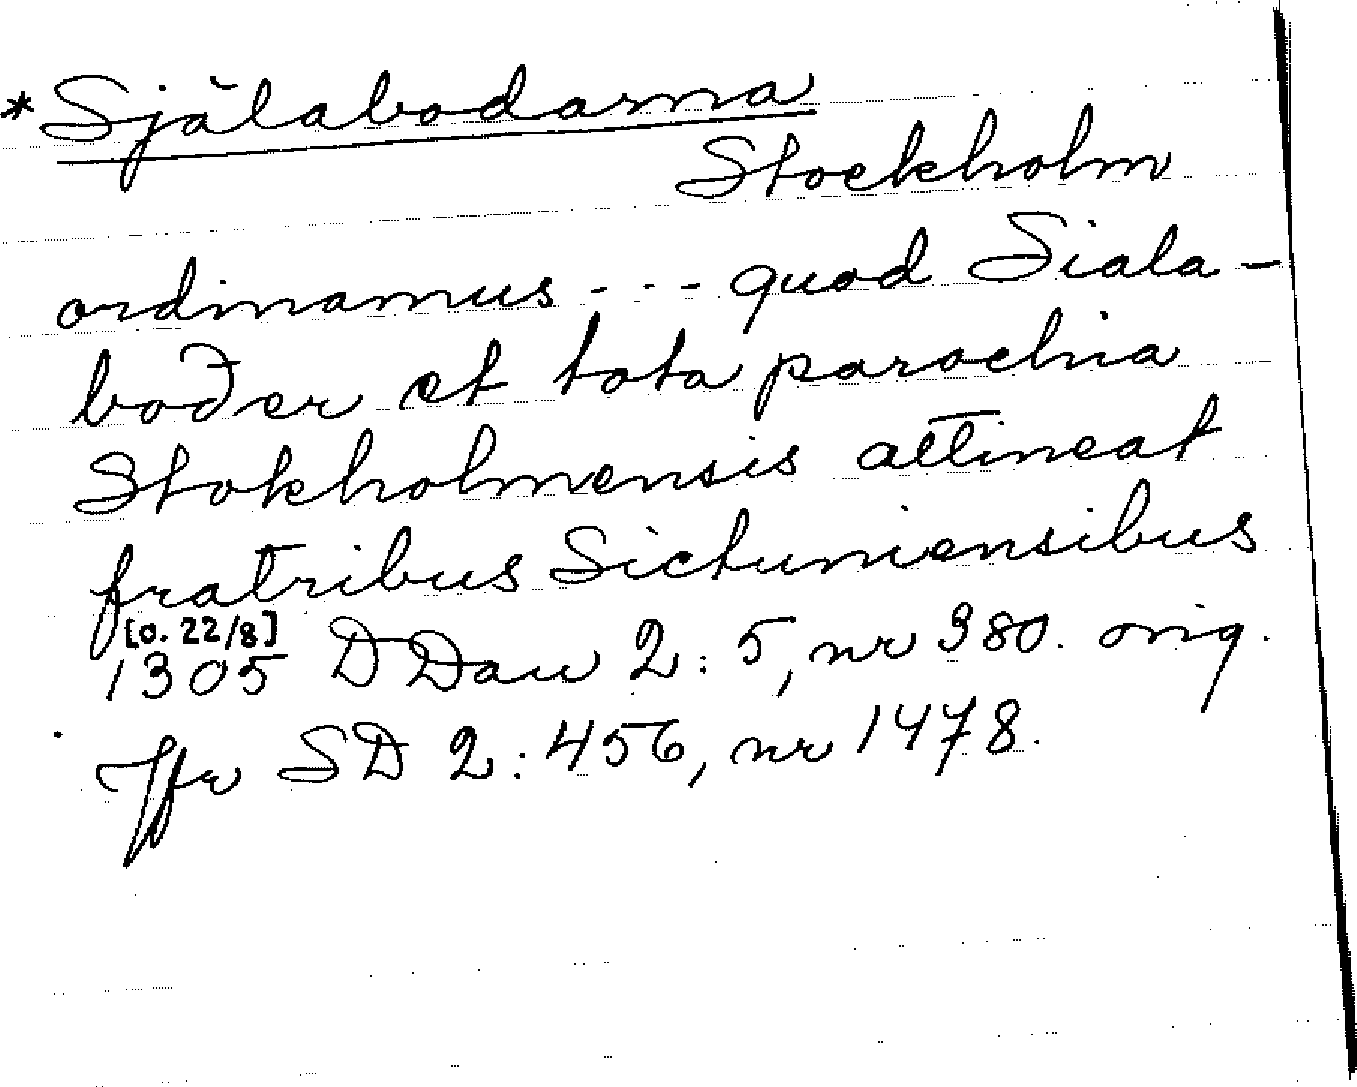 *Själabodarna
Stockholm
ordinamus - - - quod Siala-
boðer et tota parochia
Stokholmensis attineat
fratribus Sictuniensibus
[o. 22/8]
1305 DDan 2:5, nr 380. orig.
Jfr SD 2:456, nr 1478.